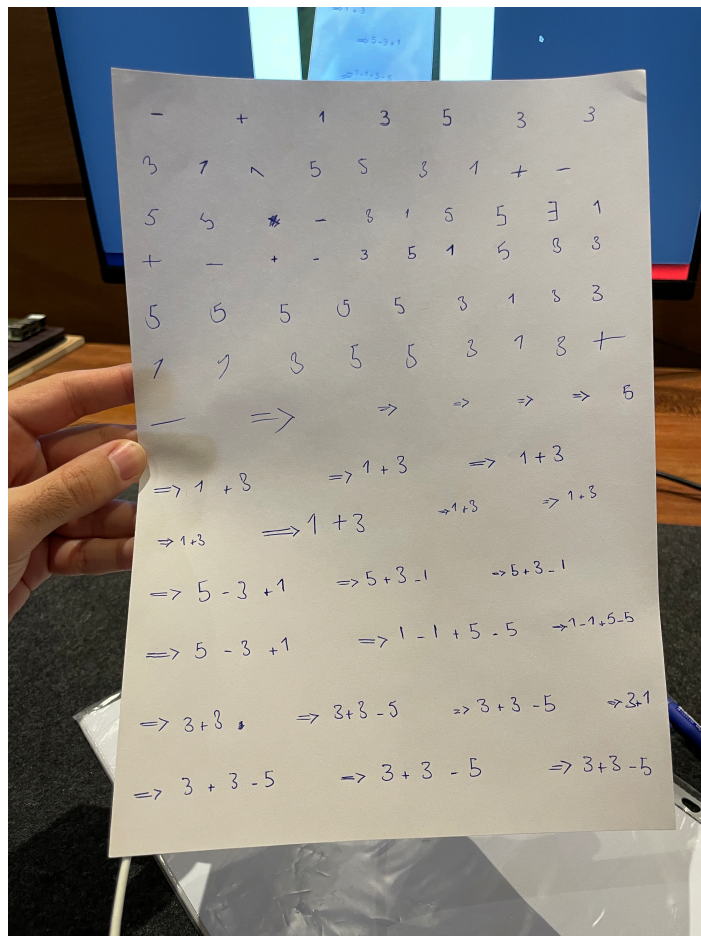 ⇒1+3
⇒5-3+1
- + 1 3 5 3 3
3 1 5 5 3 1 + -
5 5 - 3 1 5 5 3 1
+ - + - 3 5 1 5 3 3
5 5 5 5 5 3 1 3 3
1 1 3 5 5 3 1 3 +
- ⇒ ⇒ ⇒ ⇒ ⇒ 5
⇒ 1 + 3 ⇒ 1 + 3 ⇒ 1 + 3
⇒ 1+3 ⇒ 1 + 3 ⇒1+3 ⇒ 1+3
⇒ 5 - 3 + 1 ⇒ 5 + 3 - 1 ⇒ 5 + 3 - 1
⇒ 5 - 3 + 1 ⇒ 1 - 1 + 5 - 5 ⇒ 1-1+5-5
⇒ 3+3 ⇒ 3+3-5 ⇒ 3+3-5 ⇒ 3+1
⇒ 3 + 3 - 5 ⇒ 3 + 3 - 5 ⇒ 3+3-5